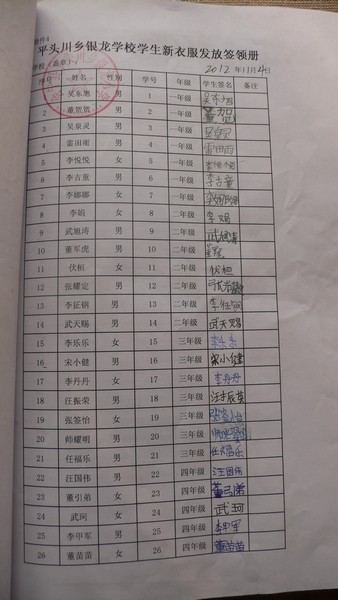 附件4
平头川乡银龙学校学生新衣服发放签领册
学校（盖章） 2012年11月4日
序号 姓名 性别 学号 年级 学生签名 备注
1 吴东旭 男 1 一年级
2 董贺贺 男 2 一年级 董贺
3 吴泉灵 男 3 一年级 吴泉灵
4 雷田雨 男 4 一年级 雷田雨
5 李悦悦 女 5 一年级 李悦悦
6 李古董 男 6 一年级 李古董
7 李娜娜 女 7 一年级 李娜娜
8 李娟 女 8 二年级 李娟
9 武旭涛 男 9 二年级 武旭涛
10 董军虎 男 10 二年级
11 伏桓 女 11 二年级 伏桓
12 张耀定 男 12 二年级 张耀定
13 李征钢 男 13 二年级 李征钢
14 武天赐 男 14 二年级 武天赐
15 李乐乐 女 15 三年级 李乐乐
16 宋小健 男 16 三年级 宋小健
17 李丹丹 女 17 三年级 李丹丹
18 汪振荣 男 18 三年级 汪振荣
19 张签怡 女 19 三年级 张签怡
20 帅耀明 男 20 三年级 帅耀明
21 任福乐 男 21 三年级 任福乐
22 汪国伟 男 22 四年级 汪国伟
23 董引弟 女 23 四年级 董引弟
24 武珂 女 24 四年级 武珂
25 李甲军 男 25 四年级 李甲军
26 董苗苗 女 26 四年级 董苗苗